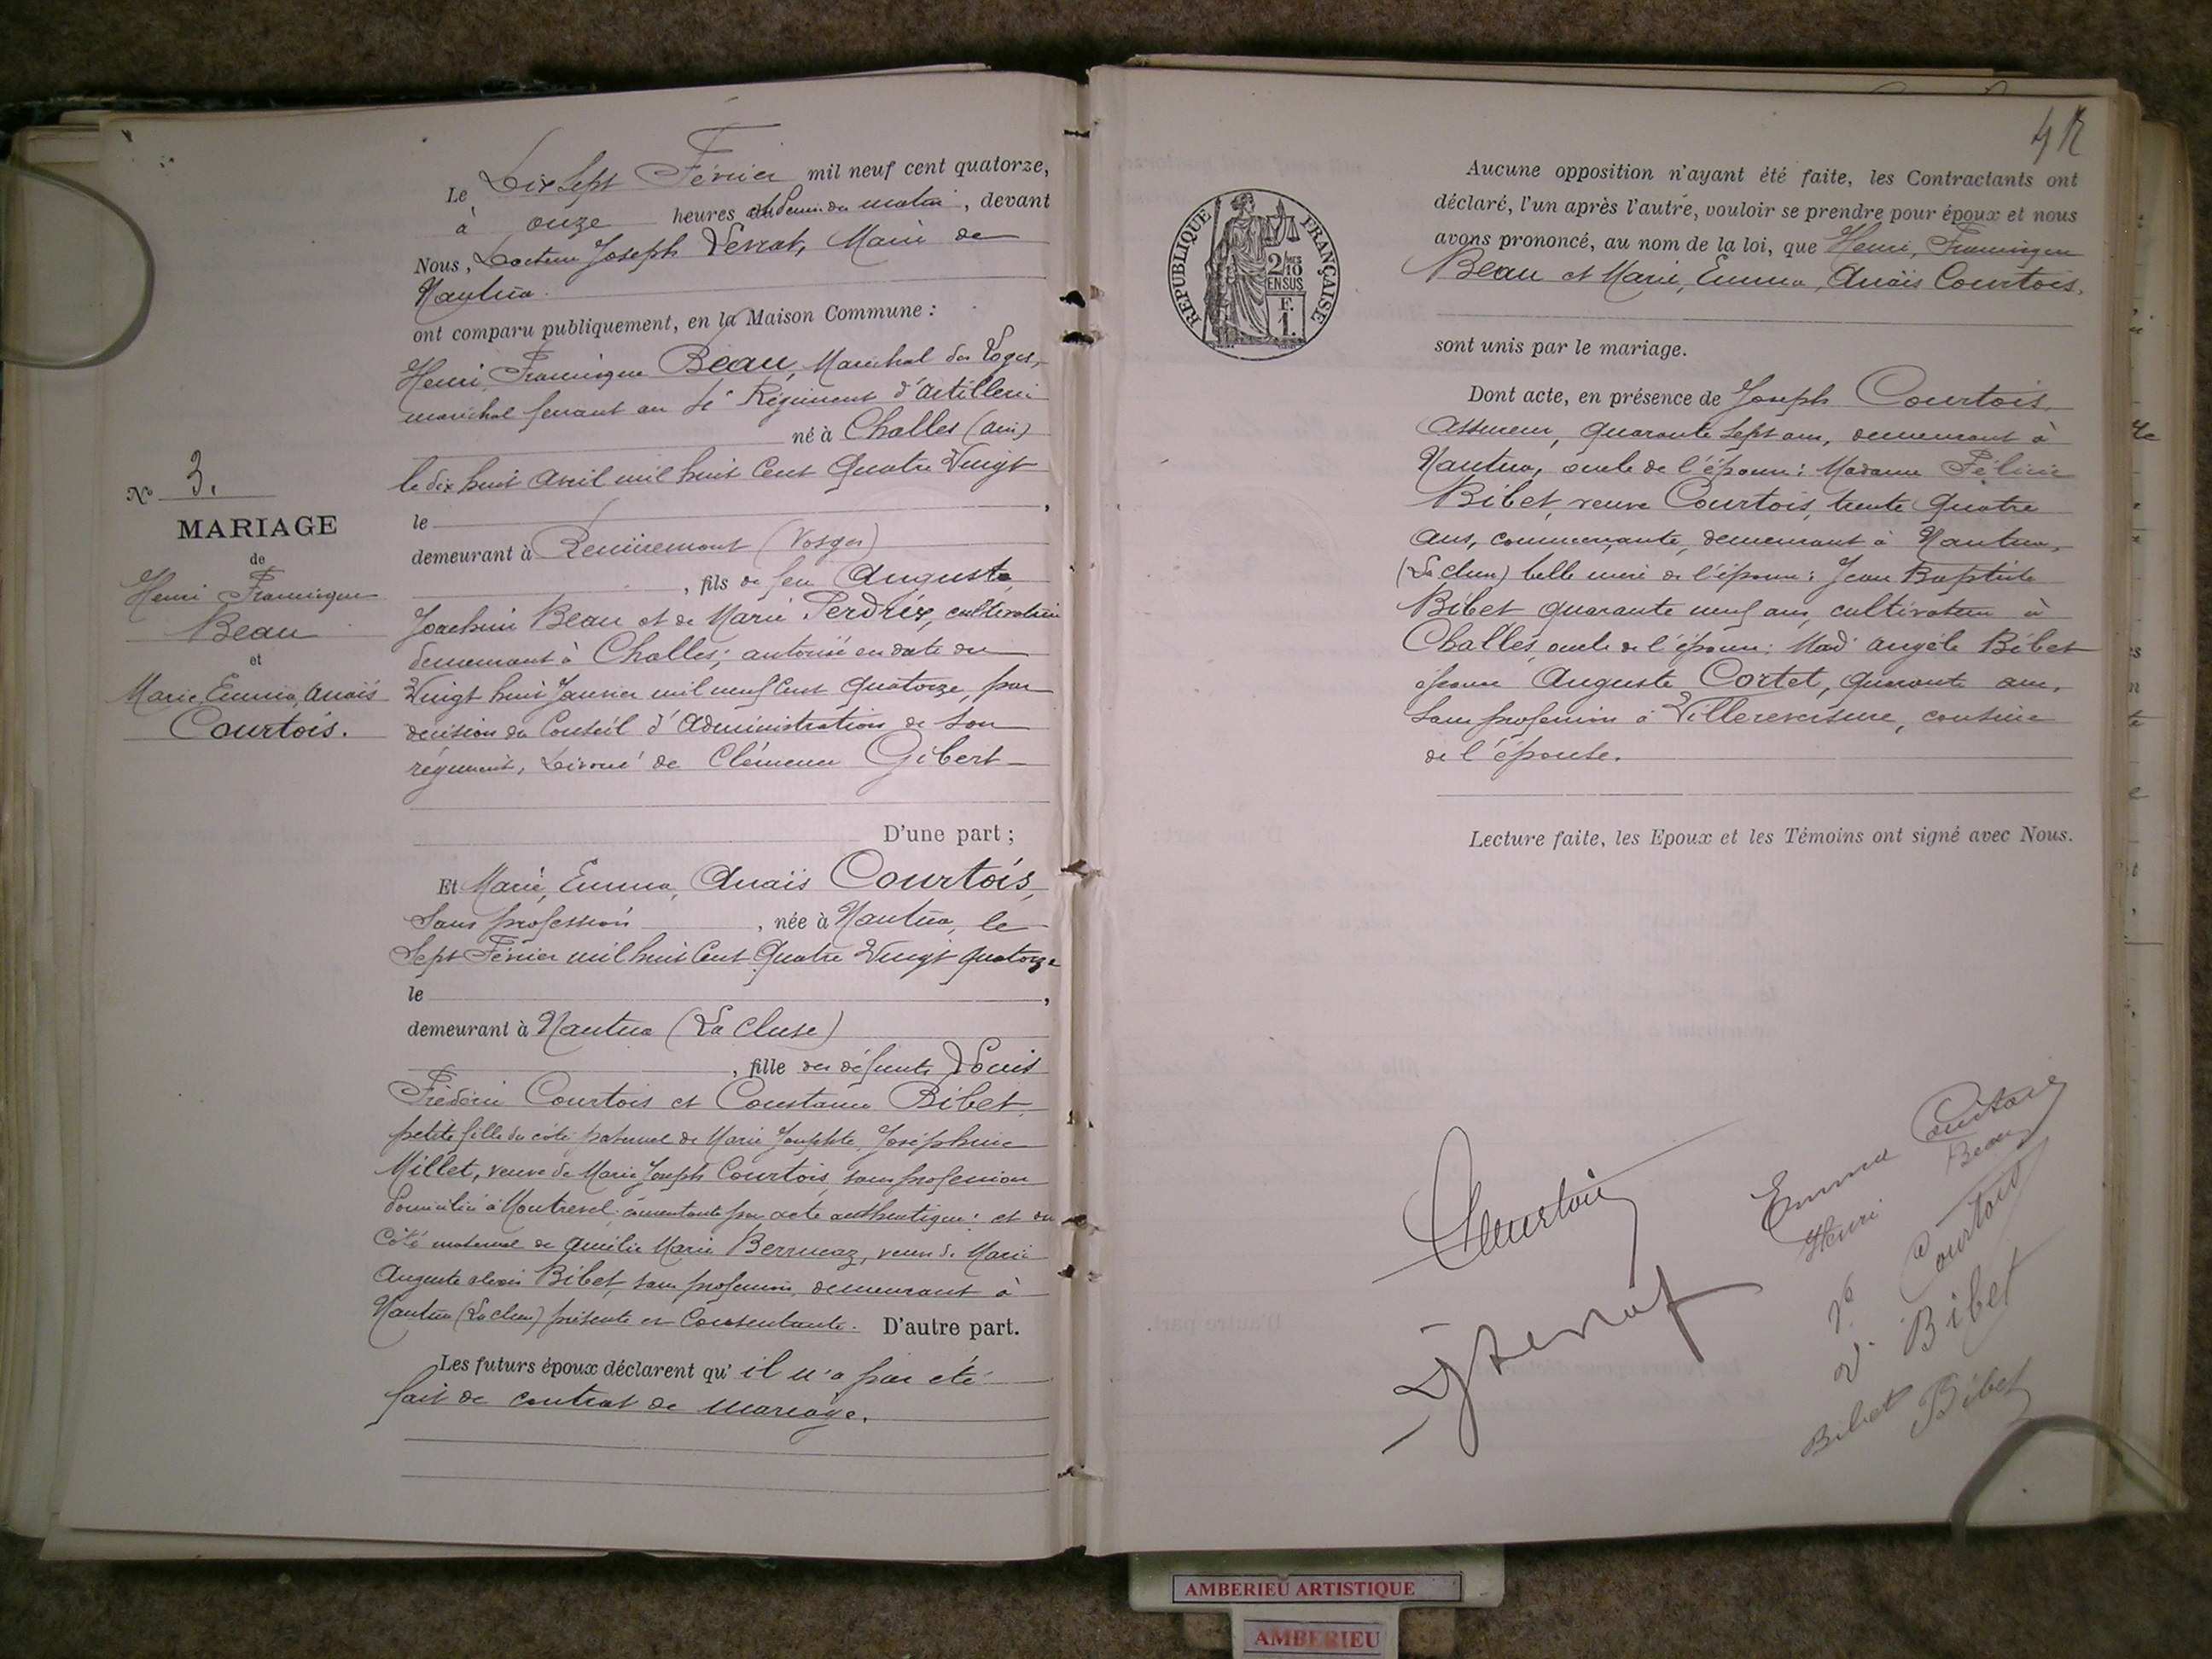 Le Dix Sept Février mil neuf cent quatorze,
à onze heures et demie du matin, devant
Nous, Docteur Joseph Verrat, Maire de
Nantua.
ont comparu publiquement, en la Maison Commune :
Henri, Beau, Maréchal des Logis,
maréchal ferrant au Régiment d'artillerie
né à Challes (Ain)
le dix huit avril mil huit Cent Quatre Vingt
le ,
demeurant à Remiremont (Vosges)
, fils de feu Auguste
Joachim Beau et de Marie Perdrix, cultivatrice
demeurant à Challes; autorisé en date du
Vingt huit Janvier mil neuf Cent Quatorze, par
décision du Conseil d'Administration de son
régiment, Divorcé de Clémence Gibert
D'une part ;
Et Marie, Emma, Anaïs Courtois,
Sans profession , née à Nantua, le
Sept Février mil huit Cent Quatre Vingt quatorze
le ,
demeurant à Nantua (La Cluse)
, fille des défunts Louis
Frédéric Courtois et Constance Bibet,
petite fille du côté paternel de Marie Josephte Joséphine
Millet, veuve de Marie Joseph Courtois, sans profession
domiciliée à Montrevel consentante par acte authentique : et du
Côté maternel de Amélie Marie Berrucaz, veuve de Marie
Auguste Bibet, sans profession, demeurant à
Nantua (La Cluse) présente et Consentante. D'autre part.
Les futurs époux déclarent qu'il n'a pas été
fait de contrat de mariage.
No 3.
MARIAGE
de
Henri
Beau
et
Marie, Emma, Anaïs
Courtois.
Aucune opposition n'ayant été faite, les Contractants ont
déclaré, l'un après l'autre, vouloir se prendre pour époux et nous
avons prononcé, au nom de la loi, que Henri,
Beau et Marie, Emma, Anaïs Courtois.
sont unis par le mariage.
Dont acte, en présence de Joseph Courtois
Assureur, quarante sept ans, demeurant à
Nantua, oncle de l'épouse : Madame Félicie
Bibet, veuve Courtois, trente quatre
ans, commerçante, demeurant à Nantua,
(La Cluse) belle mère de l'épouse : Jean Baptiste
Bibet quarante neuf ans, cultivateur à
Challes, oncle de l'épouse : Mad. Angèle Bibet
épouse Auguste Cortet, quarante ans,
sans profession à Villereversure, cousine
de l'épouse.
Lecture faite, les Epoux et les Témoins ont signé avec Nous.
RÉPUBLIQUE FRANÇAISE
2/10 MES
EN SUS
F.
1.
Courtois
Emma Courtois
Henri Beau
Courtois
Bibet
Bibet Bibet
AMBERIEU ARTISTIQUE
AMBERIEU